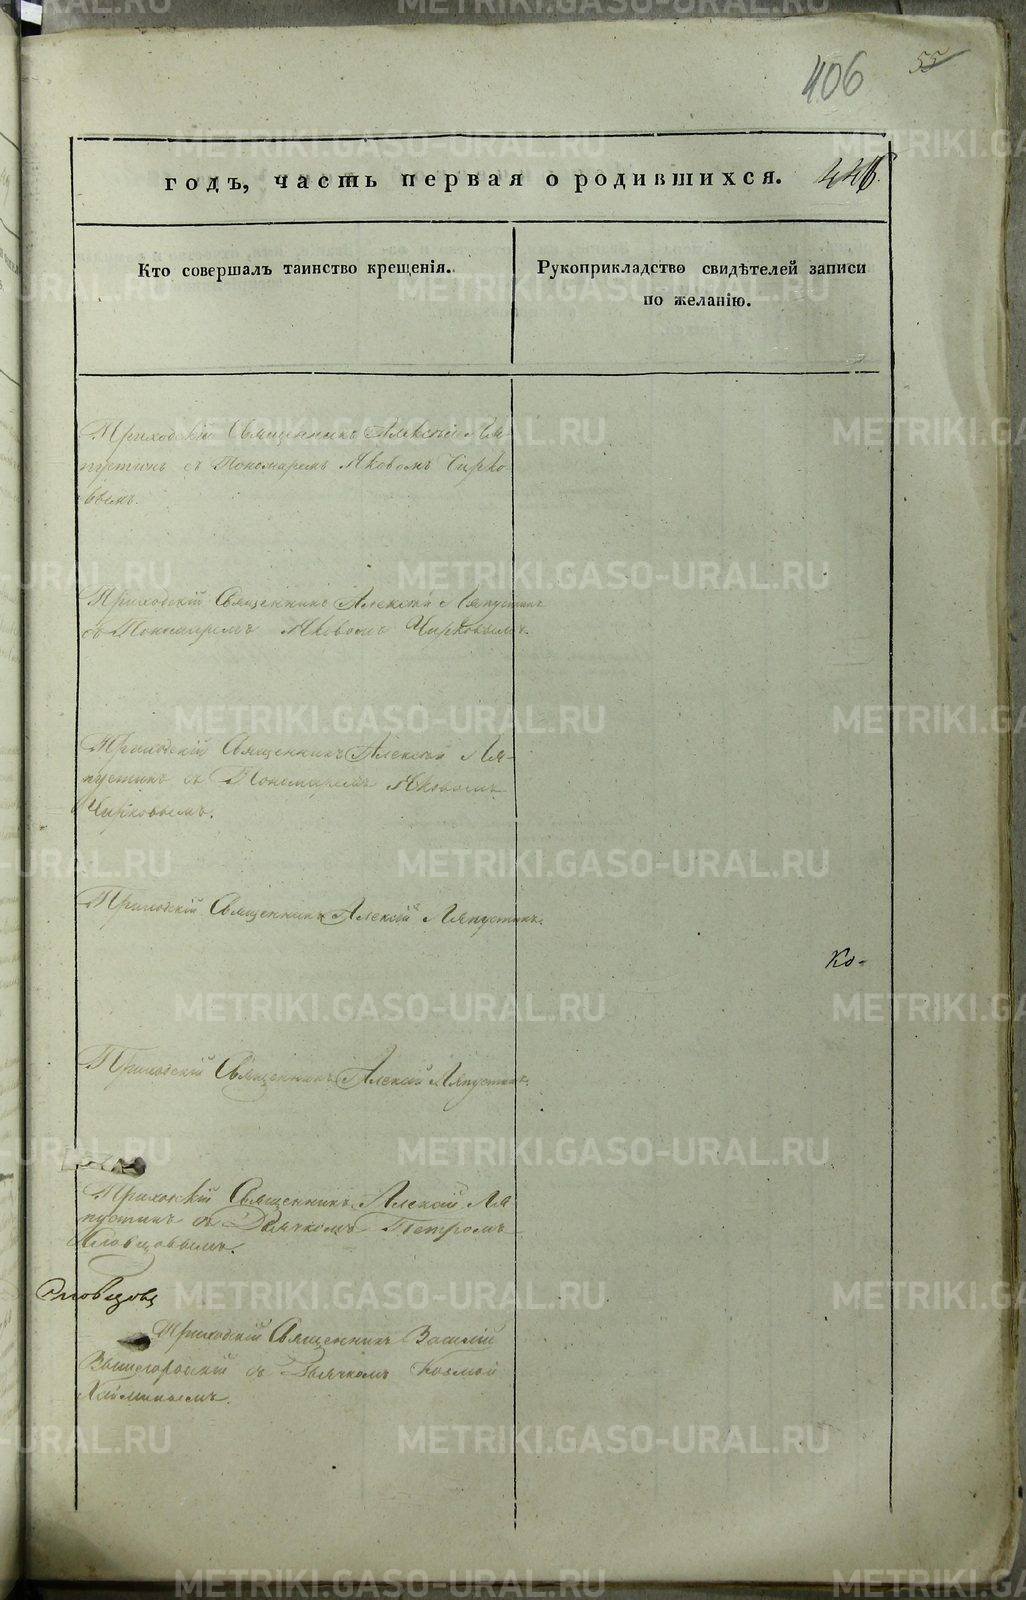 406 55
годъ, часть первая о родившихся. 446.
Кто совершалъ таинство крещенія.
Рукоприкладство свидѣтелей записи
по желанію.
Приходскій Священникъ Алексій Ля-
пустинъ съ Пономаремъ Яковомъ Чирко-
вымъ.
Приходскій Священникъ Алексій Ляпустинъ
съ Пономаремъ Яковомъ Чирковымъ.
Приходскій Священникъ Алексій Ля-
пустинъ съ Пономаремъ Яковомъ
Чирковымъ.
Приходскій Священникъ Алексій Ляпустинъ.
Ко-
Приходскій Священникъ Алексій Ляпустинъ.
Приходскій Священникъ Алексій Ля
пустинъ съ Дьячкомъ Петромъ
Словцовымъ.
Словцовъ
Приходскій Священникъ Василій
Вышегорскій съ Дьячкомъ Козмой
METRIKI.GASO-URAL.RU